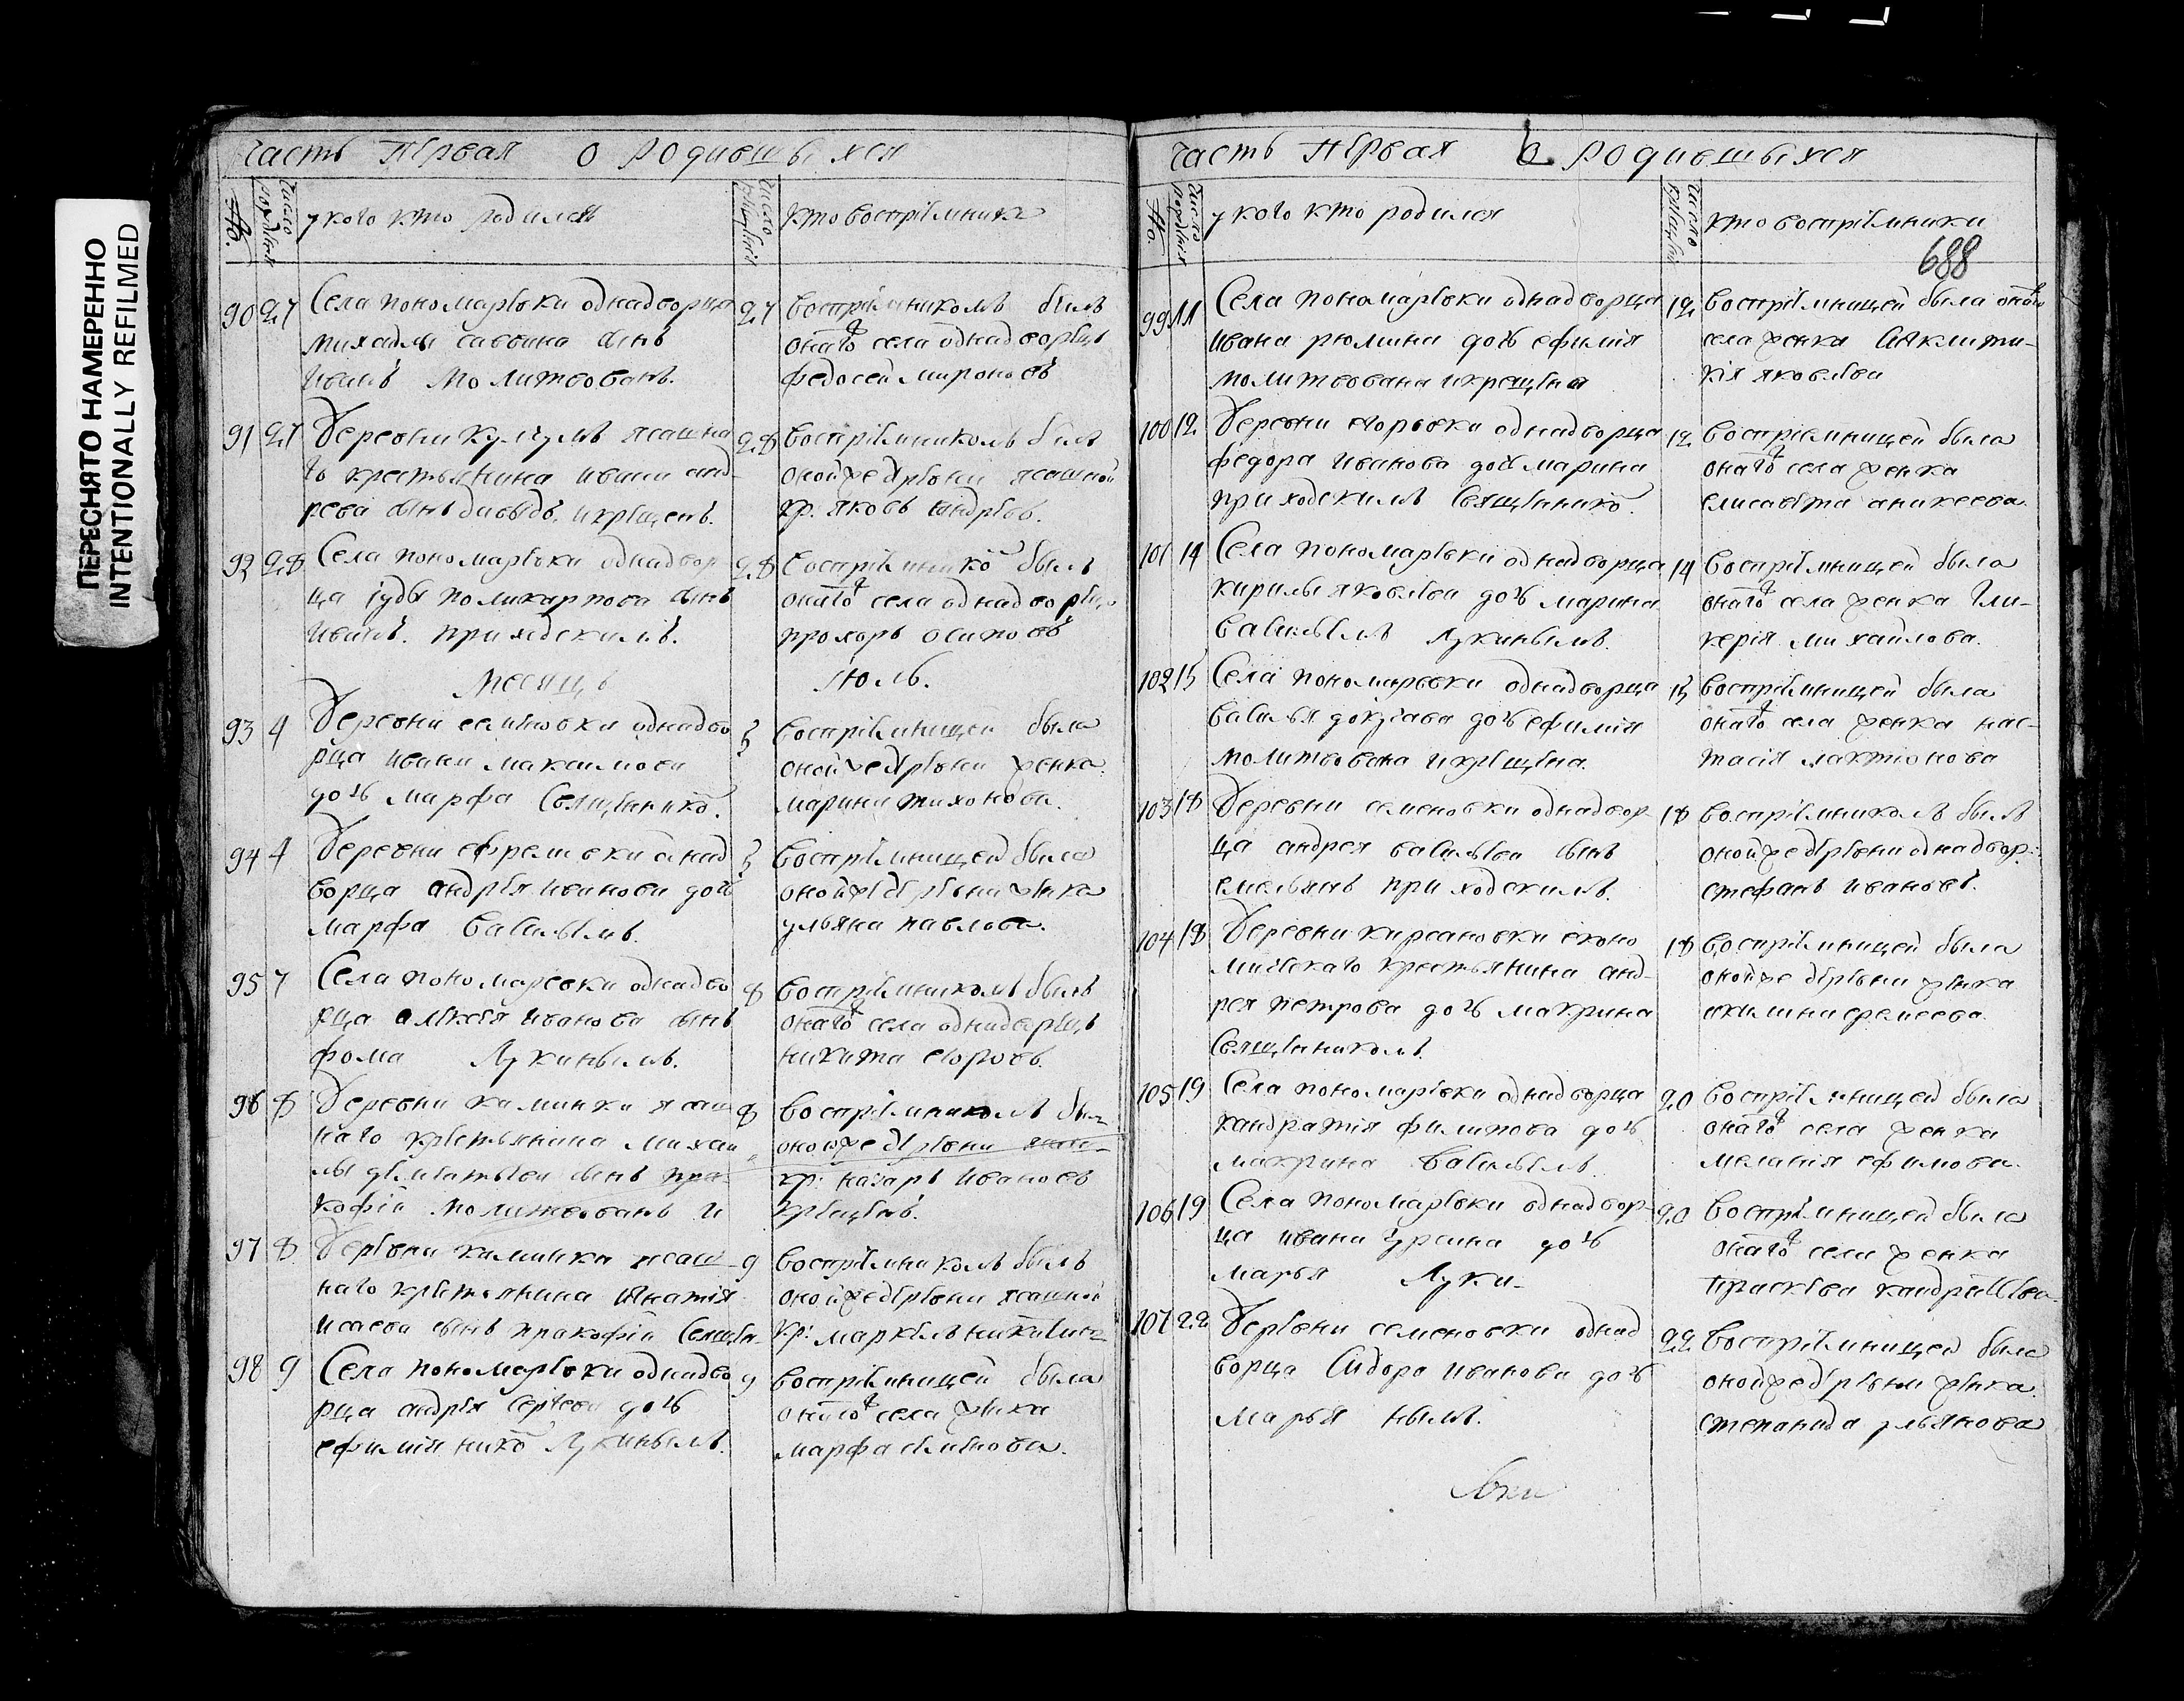 ПЕРЕСНЯТО НАМЕРЕННО
INTENTIONALLY REFILMED
часть первая о родившыхся
№.
число рождения
у кого кто родился
число крещения
кто восприемники
90 27 Села пономаревки однадворца
михайлы савина сынъ
иванъ молитвованъ.
27 восприемникомъ былъ
онаго села однадворецъ
федосей мироновъ
91 27 Деревни ясашна
го крестьянина ивана анд-
реева сынъ давыдъ. и крещенъ.
28 восприемникомъ былъ
оной же деревни ясашной
кр. яковъ андреевъ.
92 28 Села пономаревки однадвор
ца іуды поликарпова сынъ
иванъ. приходскимъ.
28 восприемнико былъ
онаго села однадворецъ
прохоръ осиповъ
месяцъ июль.
93 4 Деревни семеновки однадво
рца ивана максимова
дочь марфа священико.
5 восприемницей была
оной же деревни женка
марина тихонова.
94 4 Деревни ефремовки однад
ворца андрея иванова дочь
марфа василиемъ.
5 восприемницей была
оной же деревни женка
ульяна павлова.
95 7 Села пономаревки однадво
рца алексея иванова сынъ
фома Лукинымъ.
8 восприемникомъ былъ
онаго села однадворецъ
никита егоровъ.
96 8 Деревни каминки ясаш
наго крестьянина михаи
лы дементьева сынъ пра-
кофій молитвованъ и
8 восприемникомъ былъ
оной же деревни
кр: назаръ ивановъ
крещенъ.
97 8 Деревни каминка ясаш-
наго крестьянина игнатія
исаева сынъ пракофій священ-
9 восприемникомъ былъ
оной же деревни ясашной
кр: маркелъ
98 9 Села пономаревки однадво
рца андрея сергеева дочь
ефимія нико Лукинымъ.
9 восприемницей была
онаго села женка
марфа семенова.
часть первая о родившыхся
№.
число рождения
у кого кто родился
число крещения
кто восприемники
688
99 11 Села пономаревки однадворца
ивана рюмина дочь ефимія
молитвована и крещена
12 восприемницей была онаго
села женка
яковлева
100 12 Деревни егоровки однадворца
федора иванова дочь марина
приходскимъ священико.
12 восприемницей была
онаго села женка
елисавета аникеева.
101 14 Села пономаревки однадворца
кирилы яковлева дочь марина
василиемъ Лукинымъ.
14 восприемницей была
онаго села женка гли-
керія михайлова.
102 15 Села пономаревки однадворца
василья докучаева дочь ефимія
молитвована и крещена.
15 восприемницей была
онаго села женка нас-
тасія лактионова
103 18 Деревни семеновки однадвор
ца андрея васильева сынъ
емельянъ приходскимъ.
18 восприемникомъ былъ
оной же деревни однадвор:
стефанъ ивановъ.
104 18 Деревни кирсановки еконо
мическаго крестьянина анд-
рея петрова дочь макрина
священикомъ.
18 восприемницей была
оной же деревни женка
акилина еремеева.
105 19 Села пономаревки однадворца
кандратія филипова дочь
макрина василиемъ
20 восприемницей была
онаго села женка
меланія ефимова.
106 19 Села пономаревки однадвор-
ца ивана дочь
марья Луки-
20 восприемницей была
онаго села женка
прасковя кандратьева.
107 22 Деревни семеновки однад
ворца сидора иванова дочь
марья нымъ.
22 восприемницей была
оной же деревни женка
степанида ульянова